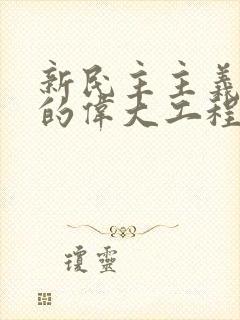 新民主主義
的偉大工程
瓊靈